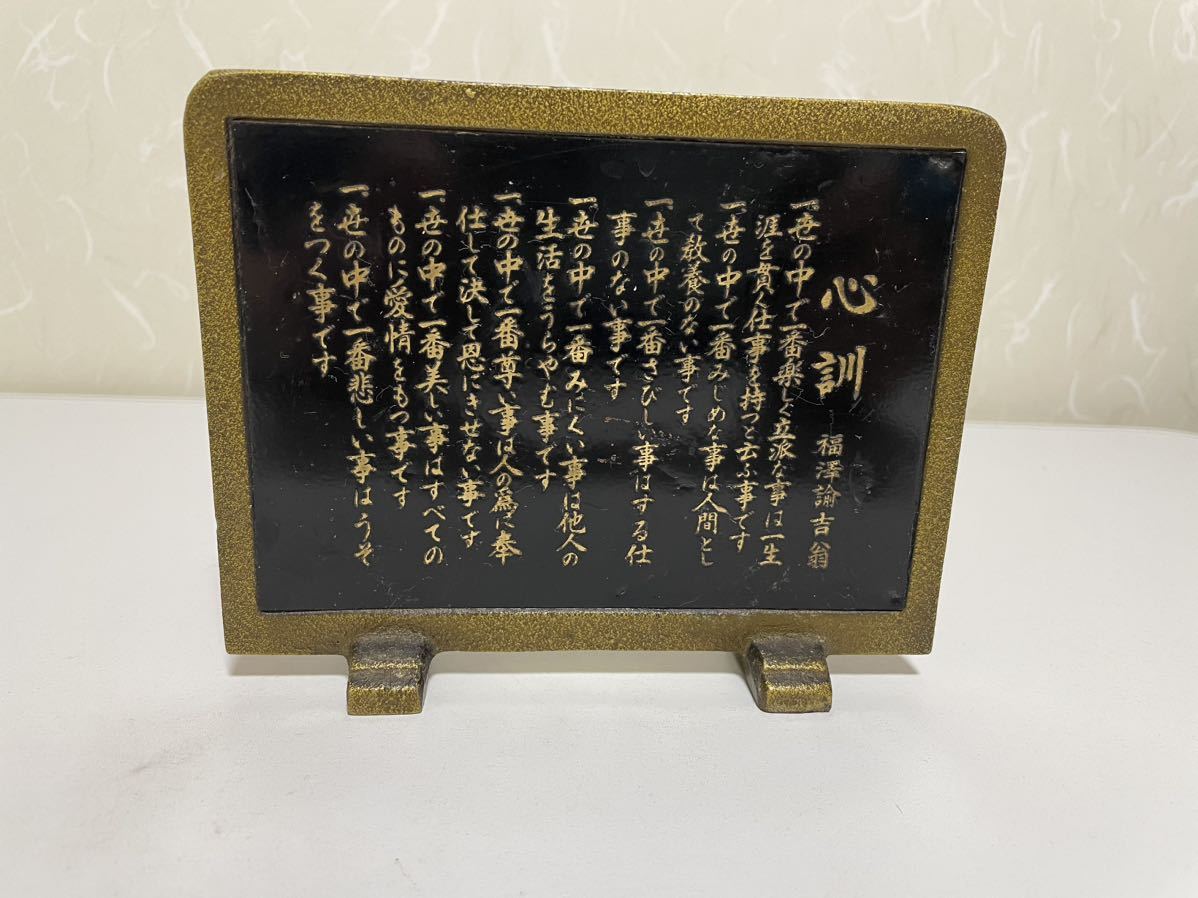 心訓
福澤諭吉翁
一、世の中で一番楽しく立派な事は一生
涯を貫く仕事を持つと云ふ事です
一、世の中で一番みじめな事は人間とし
て教養のない事です
一、世の中で一番さびしい事はする仕
事のない事です
一、世の中で一番みにくい事は他人の
生活をうらやむ事です
一、世の中で一番尊い事は人の為に奉
仕して決して恩にきせない事です
一、世の中で一番美しい事はすべての
ものに愛情をもつ事です
一、世の中で一番悲しい事はうそ
をつく事です